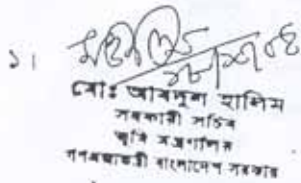 ১।
মোঃ আবদুল হালিম
সহকারী সচিব
কৃষি মন্ত্রণালয়
গণপ্রজাতন্ত্রী বাংলাদেশ সরকার